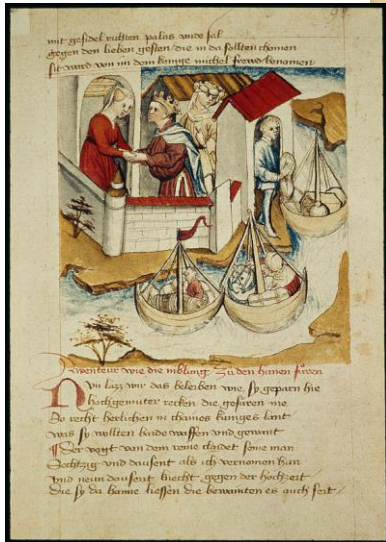 mit gesidel richten palas unde sal
gegen den lieben gesten / die in da sollten chomen
sit ward von im dem kunige michel frewd benomen
Awenteur wie die niblung zu den hewnen fůren
Nun lazz wir das beleiben wie sy geparn hie
hochgemuter recken die gefuren nie
So recht herlichen in chaines kuniges lant
was sy wollten baide waffen und gewant
Der vogt von dem reine claidet seine man
Sechtzig und dausent als ich vernomen han
Und neun dausent knecht gegen der hochzeit
die sy da haime liessen die bewainten es auch seit